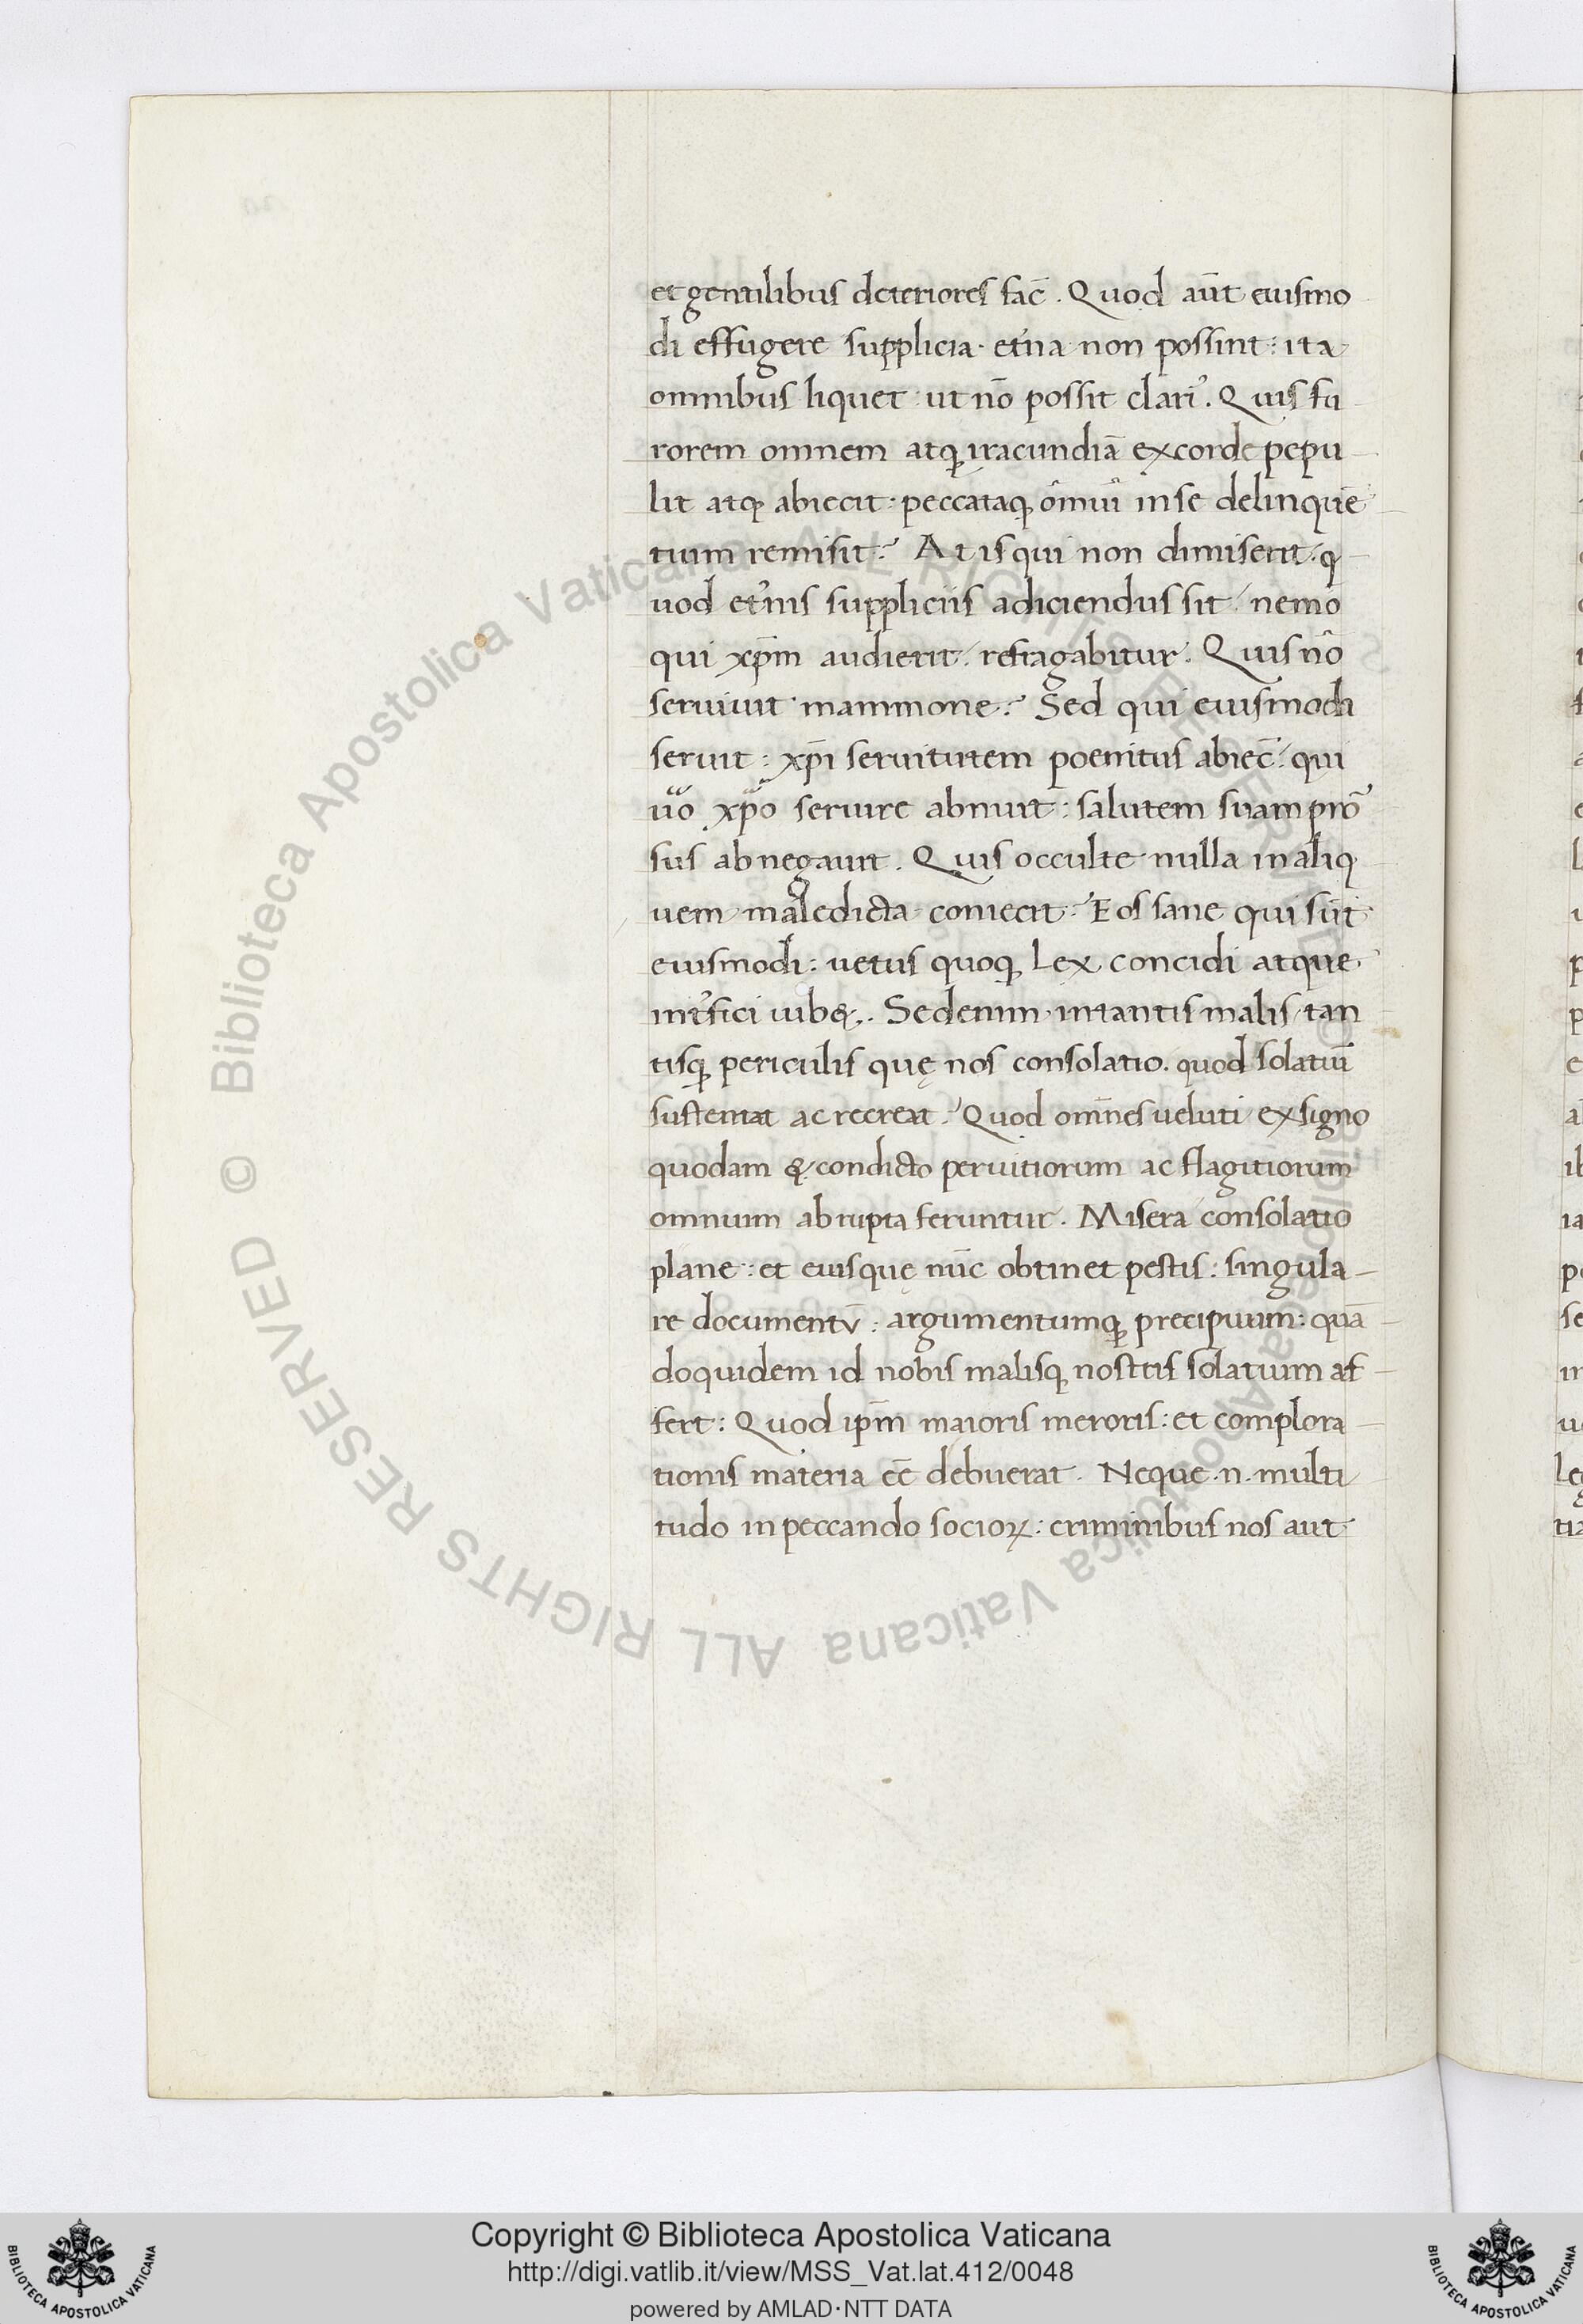 et gentilibus deteriores fac̄. Quod aūt euismo
di effugere supplicia et'na non possint: ita
omnibus liquet ut nō possit clari'. Quis fu
rorem omnem atq; iracundiā ex corde pepu
lit atq; abiecit: peccataq; ōmiū in se delinquē
tium remisit? At is qui non dimiserit. q
uod et'nis suppliciis adiciendus sit, nemo
qui xp̄m audierit, refragabitur. Quis nō
seruiuit mammone? Sed qui euismodi
seruit: xp̄i seruitutem poenitus abiec̄. qui
uo xp̄o seruire abnuit: salutem suam prō
sus abnegauit. Quis occulte nulla in aliq
uem maledicta coniecit? Eos sane qui sūt
euismodi: uetus quoq; Lex concidi atque
int'fici iub&. Sed enim in tantis malis, tan
tisq; periculis quę nos consolatio. quod solatiū
sustentat ac recreat? Quod om̄nes ueluti ex signo
quodam & condicto per uitiorum ac flagitiorum
omnium abrupta feruntur. Misera consolatio
plane: et euis quę nūc obtinet pestis: singula
re documentū: argumentumq; precipuum: quā
doquidem id nobis malisq; nostris solatium af
fert: Quod ip̄m maioris meroris: et complora
tionis materia eē debuerat. Neque .n. multi
tudo in peccando socioꝝ: criminibus nos aut
Copyright © Biblioteca Apostolica Vaticana
http://digi.vatlib.it/view/MSS_Vat.lat.412/0048
powered by AMLAD·NTT DATA
BIBLIOTECA APOSTOLICA VATICANA
BIBLIOTECA APOSTOLICA VATICANA
© Biblioteca Apostolica Vaticana ALL RIGHTS RESERVED © Biblioteca Apostolica Vaticana ALL RIGHTS RESERVED